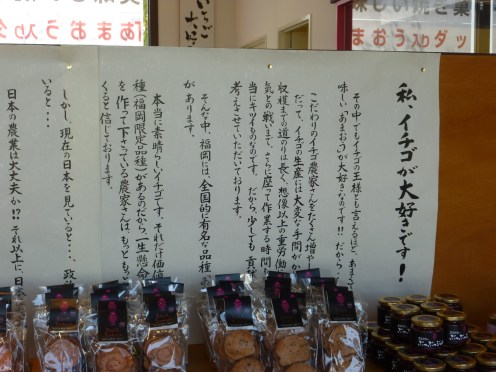 いちご
味しい焼き菓
まおう入りダッ
「あまおう入り
私、イチゴが大好きです！
その中でもイチゴの王様とも言えるほど、あまくて
味しい「あまおう」が大好きなのです!!だから
こだわりのイチゴ農家さんをたくさん増や
だって、イチゴの生産には大変な手間がか
収穫までの道のりは長く、想像以上の重労働に
気との戦いまで。さらに座って作業する時間
当にキツイものなのです。だから、少しでも貢
考えさせていただいております。
そんな中、福岡には、全国的に有名な品種
があります。
本当に素晴らしいイチゴです。それだけ価値
種（福岡限定品種）があるのだから、一生懸命
を作って下さっている農家さんは、もっともっ
くると信じております。
しかし、現在の日本を見ていると・・・、政
いると・・・
日本の農業は大丈夫か!?それ以上に日本